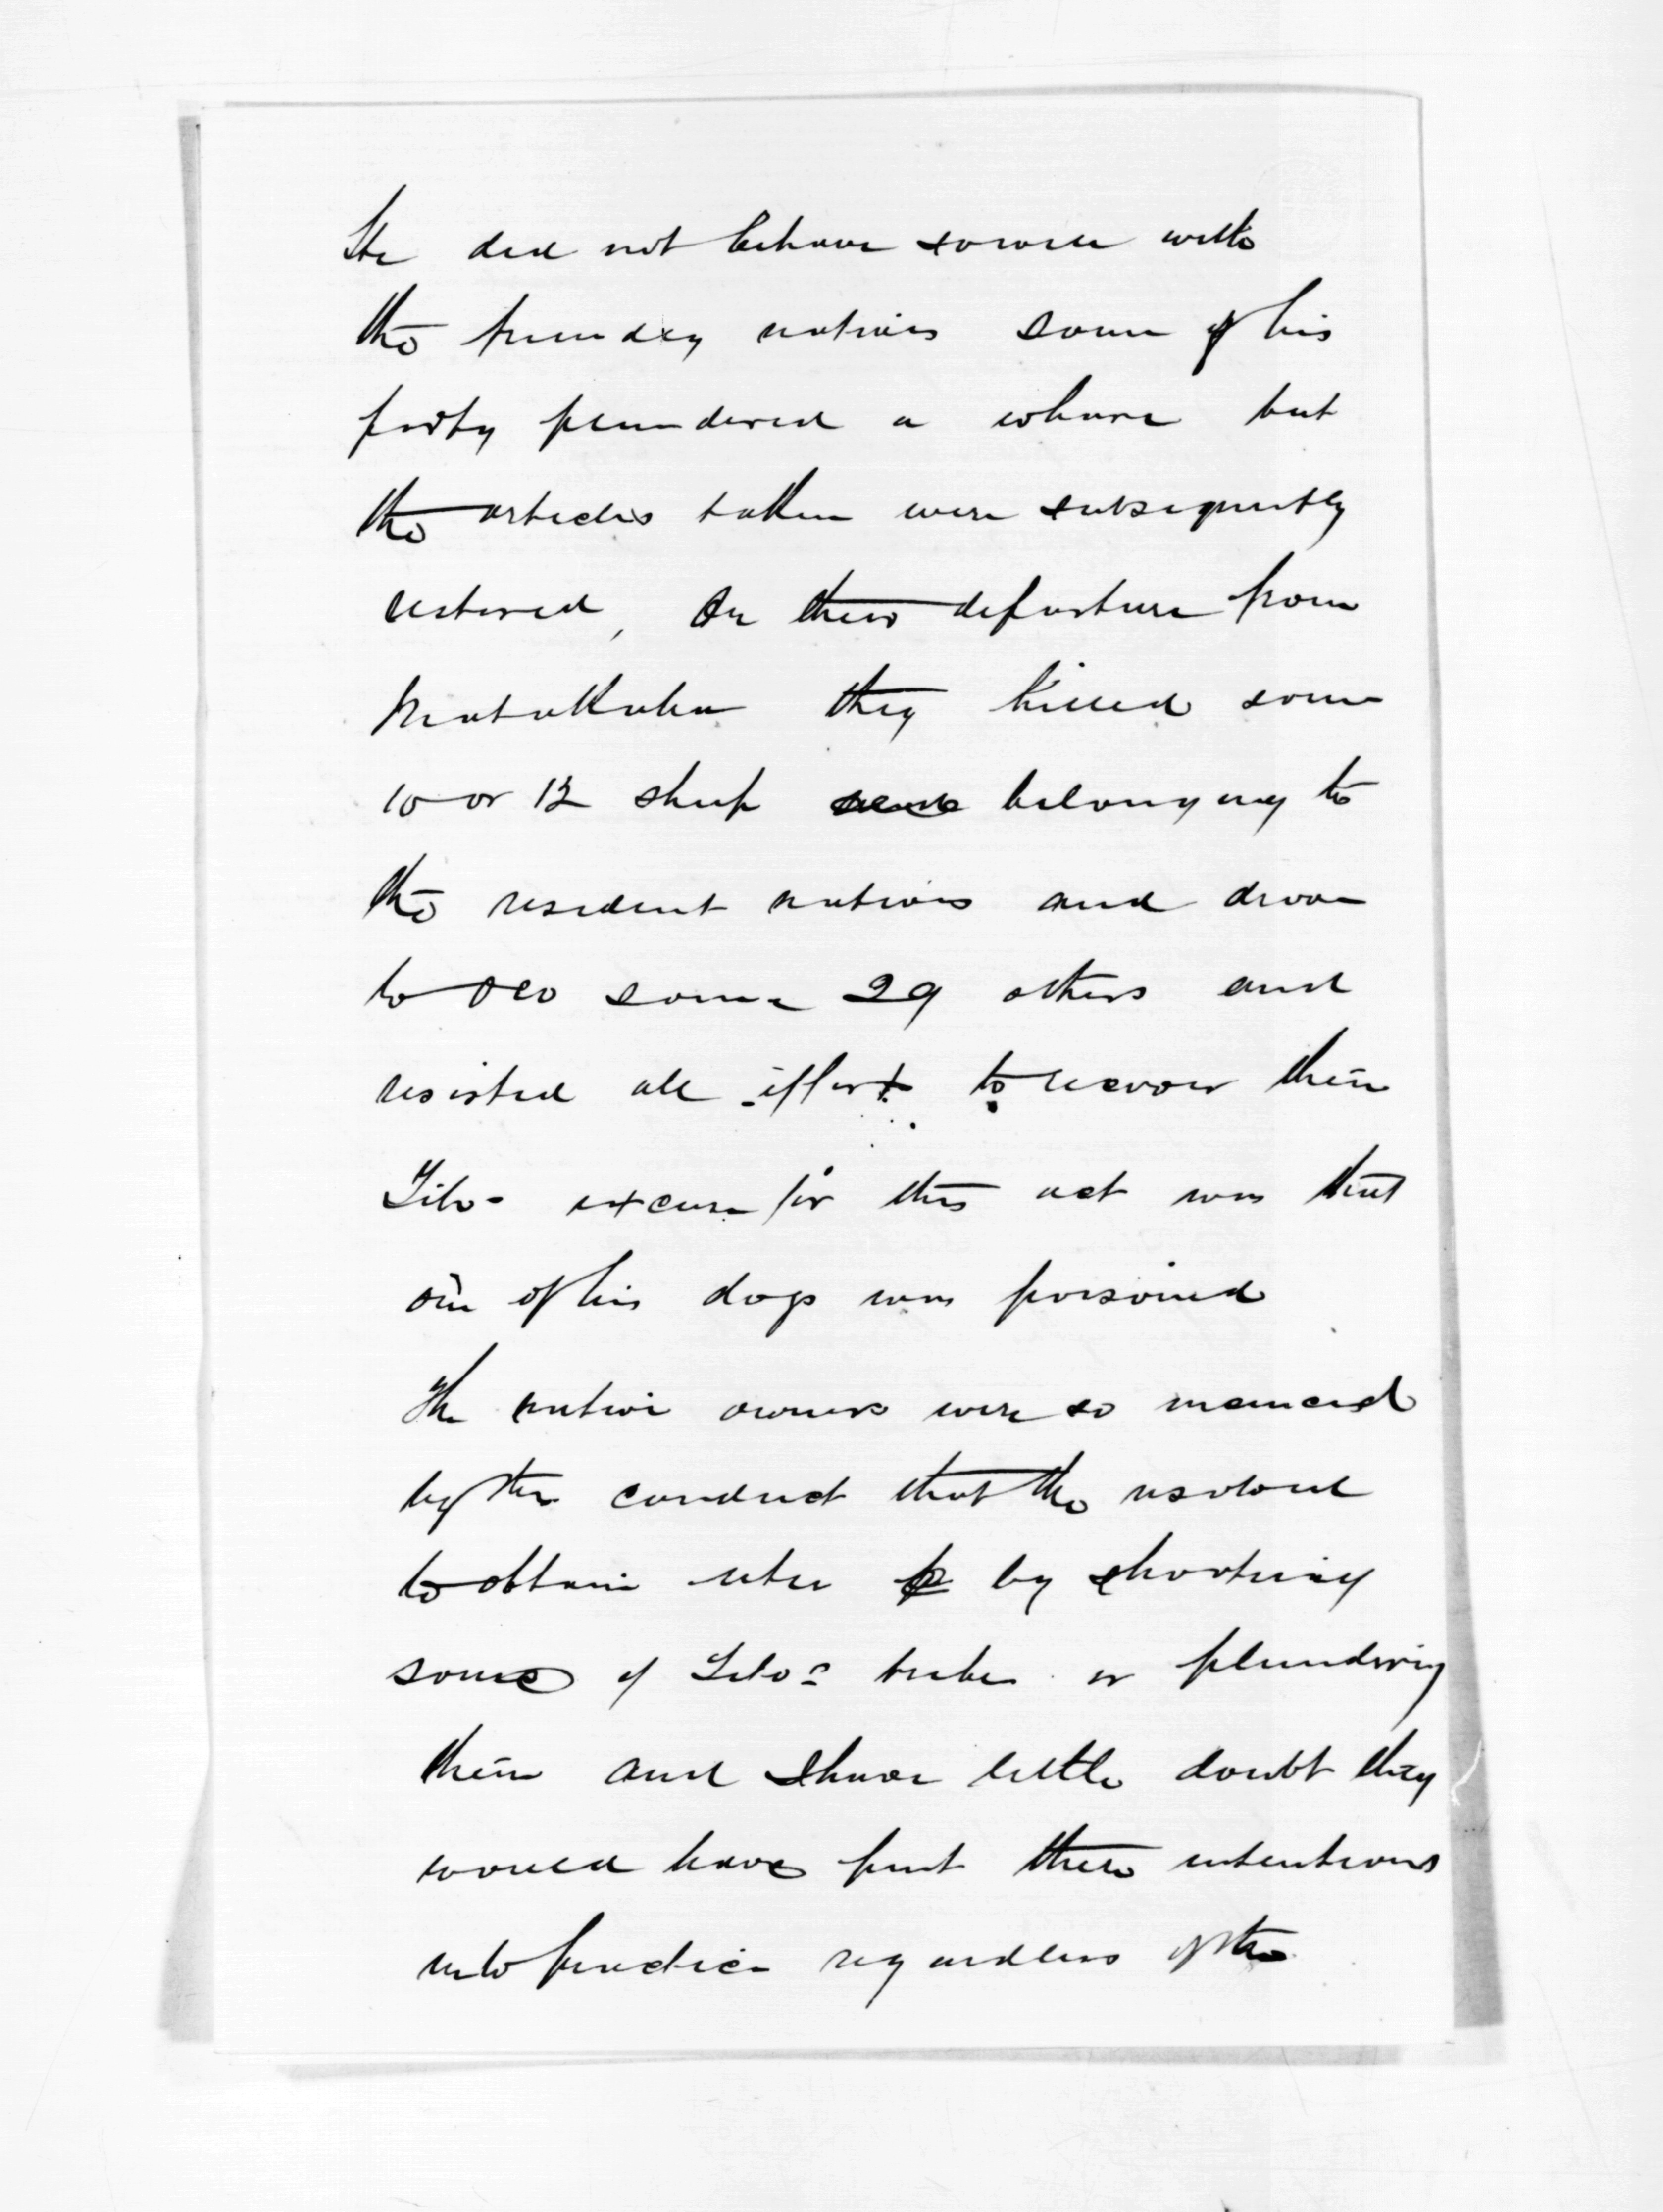 He did not behave so well with
the friendly natives some of his
party plundered a whare but
the articles taken were subsequently
restored, On their departure from
Matakuhia they killed some
10 or 12 sheep belonging to
the resident natives and drove
to some 29 others and
resisted all efforts to recover them
Tito's excuse for this act was that
one of his dogs was poisoned
The native owners were so
by the conduct that the resolved
to obtain utu by shooting
some of Tito's tribe or plundering
them and I have little doubt they
would have put their intentions
into practice regardless of the